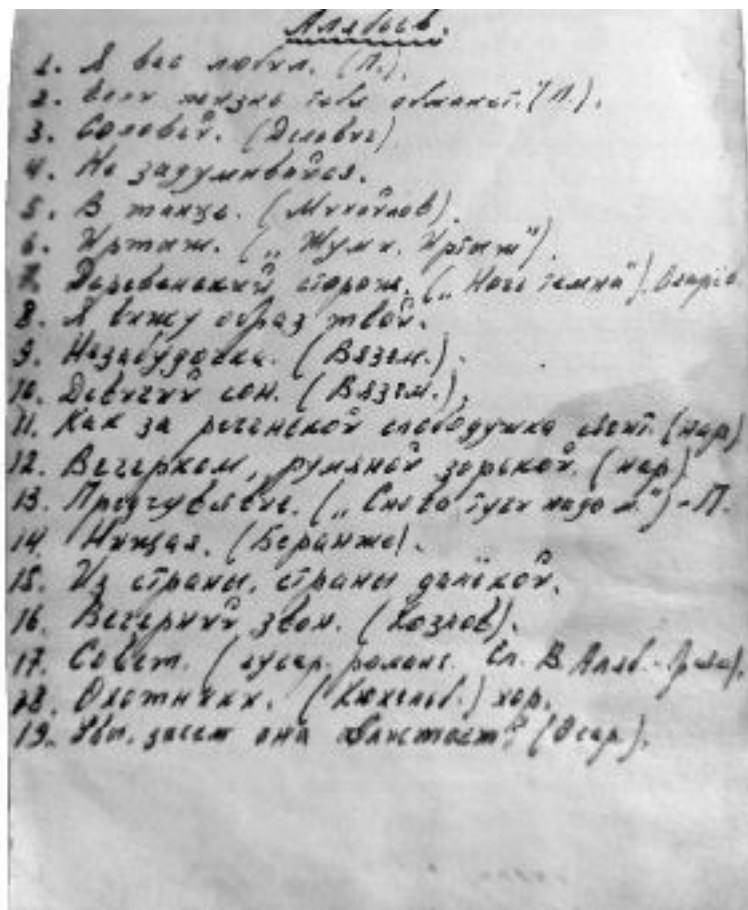 Алябьев.
1. Я вас любил. (П.).
2. Если жизнь тебя обманет. (П.).
3. Соловей. (Дельвиг)
4. Не задумывайся.
5. В танце. (Михайлов).
6. Иртыш. („Шуми, Иртыш").
7. Деревенский сторож. („Ночь темна"). Огарёв
8. Я вижу образ твой.
9. Незабудочка. (Вязем.).
10. Девичий сон. (Вязем.).
11. Как за реченькой слободушка стоит. (нар)
12. Вечерком, румяной зорькой. (нар)
13. Предчувствие. („Снова тучи надо м.") - П.
14. Нищая. (Беранже).
15. Из страны, страны далёкой.
16. Вечерний звон. (Козлов).
17. Совет. (гусар. романс. Сл. В Аляб.
18. Охотники. (Кюхельб.) хор.
19. Увы, зачем она блистает? (Пушк.).